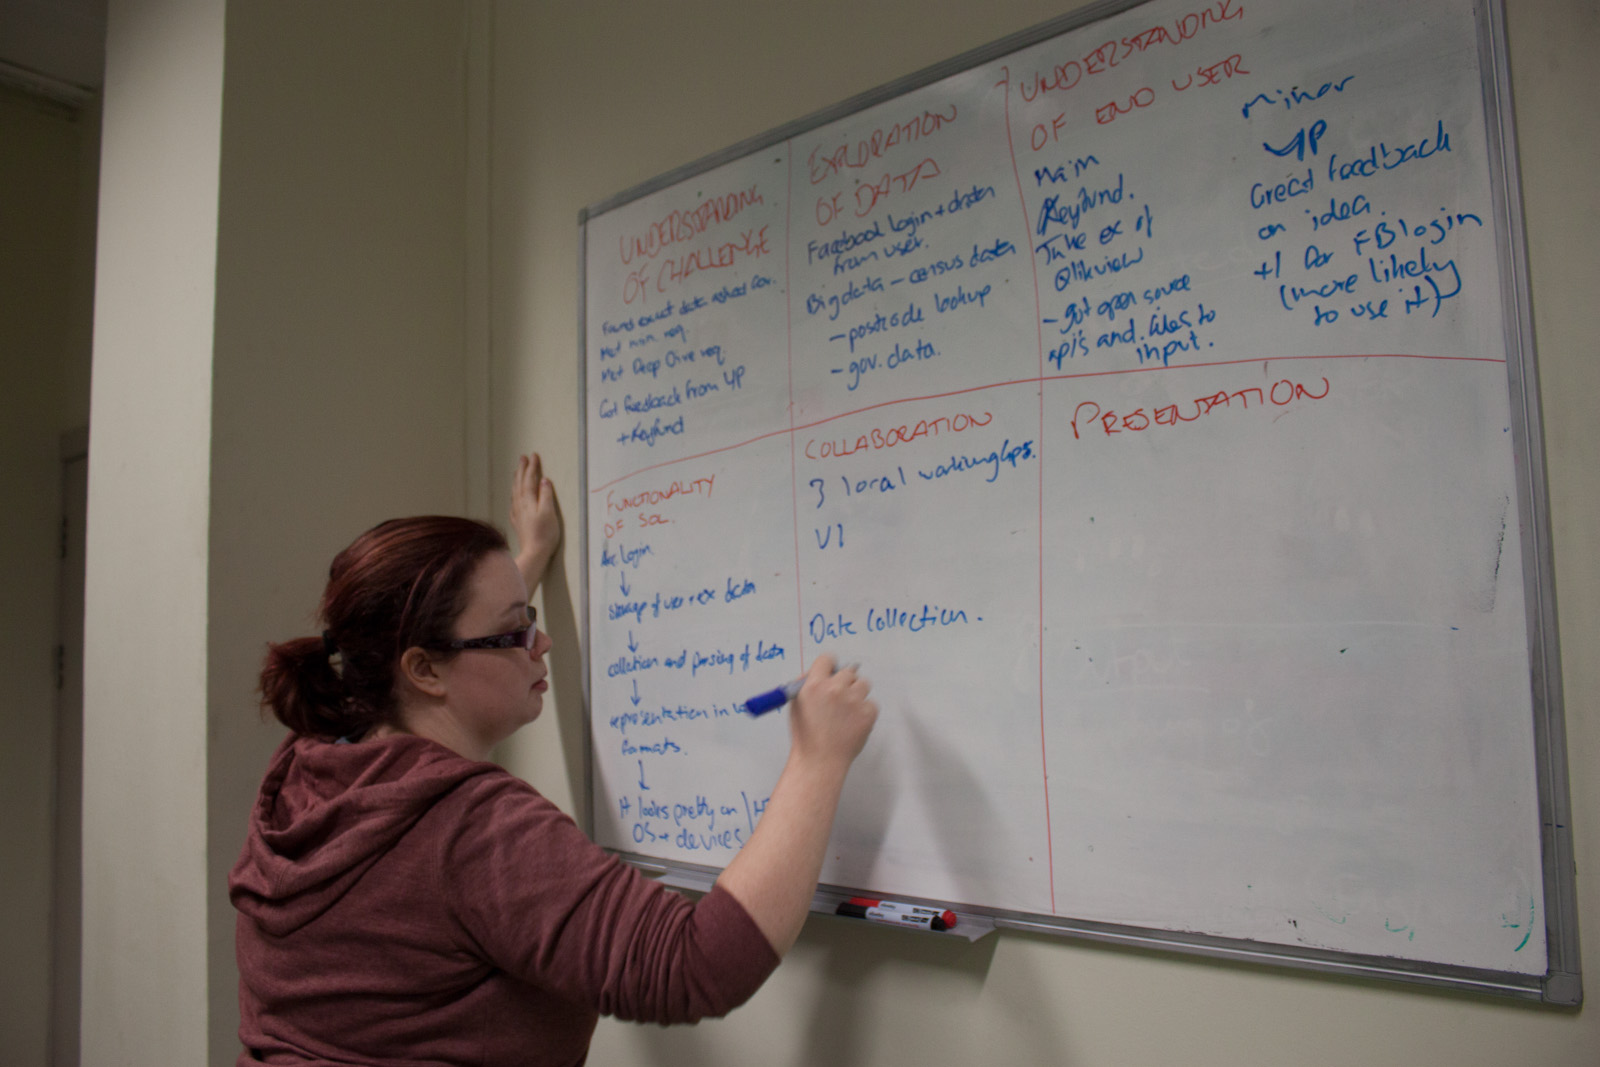 UNDERSTANDING
OF CHALLENGE
Found exact data asked for.
Met min. req.
Met Deep Dive req.
Got feedback from YP
+ Keyfund
EXPLORATION
OF DATA
Facebook login + data
from user.
Big data - census data
- postcode lookup
- gov. data.
UNDERSTANDING
OF END USER
Main
Keyfund.
Take ex of
Qlikview
- got open source
api's and files to
input.
Minor
YP
Great feedback
on idea
+1 for FB login
(more likely
to use it)
FUNCTIONALITY
OF SOL.
login
↓
storage of user + ex data
↓
collection and parsing of data
↓
representation in
formats.
↓
It looks pretty on
OS + devices
COLLABORATION
3 local working
UI
Data Collection.
PRESENTATION